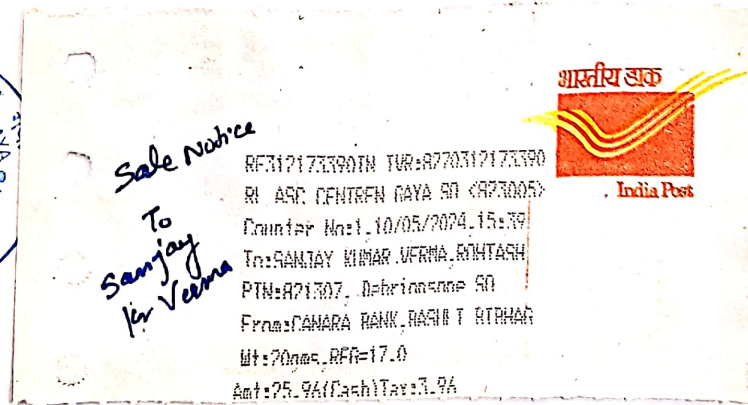 भारतीय डाक
India Post
Sale Notice
To
Sanjay
Kr Verma
RF317173390IN IVR:8770317173390
RL ASC CENTREN GAYA SO <823005>
Counter No:1,10/05/2024,15:39
To:SANJAY KUMAR VERMA,ROHTASH
PIN:821307, Dehrionsone SO
From:CANARA BANK,
Wt:20gms,REG=17.0
Amt:25.96(Cash)Tax:3.96